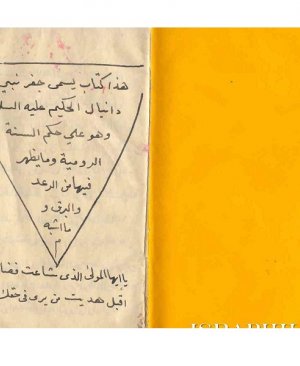 هذا كتاب يسمى جفر نبي
دانيال الحكيم عليه السلا
وهو على حكم السنة
الرومية وما يظهر
فيها من الرعد
والبرق و
ما اشبه
م
يا ايها المولى الذى شاعت فضا
اقبل هديت من يرى فى حقك